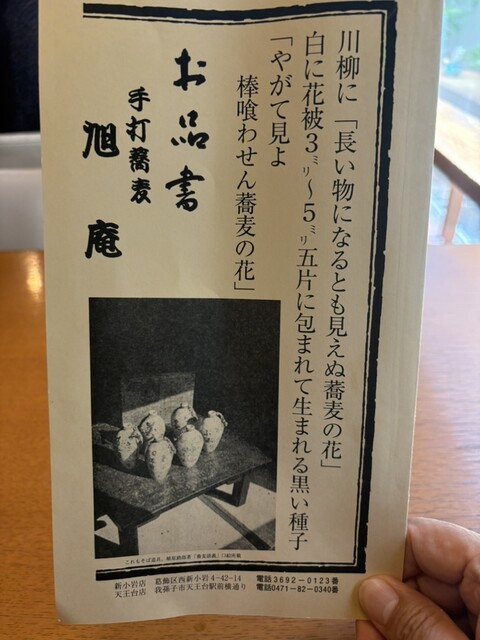 川柳に「長い物になるとも見えぬ蕎麦の花」
白に花被3ミリ〜5ミリ五片に包まれて生まれる黒い種子
「やがて見よ
棒喰わせん蕎麦の花」
お品書
手打蕎麦
旭庵
新小岩店 葛飾区西新小岩4-42-14 電話3692-0123番
天王台店 我孫子市天王台駅前橋通り 電話0471-82-0340番